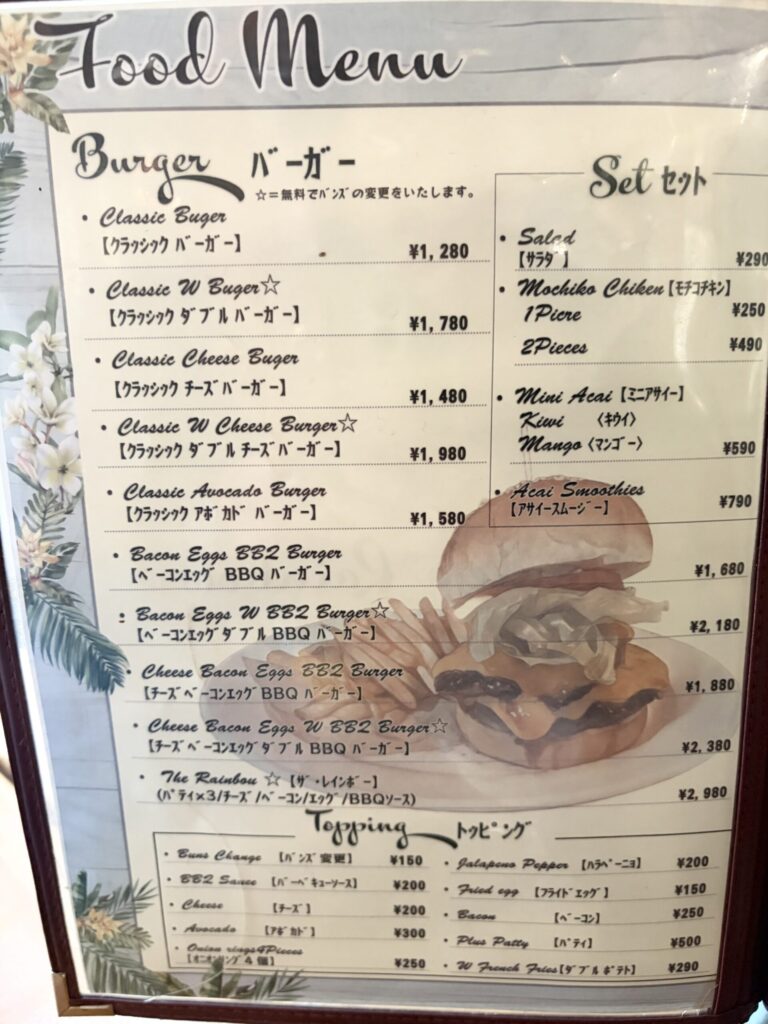 Food Menu
Burger バーガー
☆=無料でバンズの変更をいたします。
• Classic Buger
【クラッシック バーガー】 ¥1,280
• Classic W Buger☆
【クラッシック ダブル バーガー】 ¥1,780
• Classic Cheese Buger
【クラッシック チーズバーガー】 ¥1,480
• Classic W Cheese Burger☆
【クラッシック ダブル チーズバーガー】 ¥1,980
• Classic Avocado Burger
【クラッシック アボカド バーガー】 ¥1,580
• Bacon Eggs BBQ Burger
【ベーコンエッグ BBQ バーガー】 ¥1,680
• Bacon Eggs W BBQ Burger☆
【ベーコンエッグダブル BBQ バーガー】 ¥2,180
• Cheese Bacon Eggs BBQ Burger
【チーズベーコンエッグ BBQ バーガー】 ¥1,880
• Cheese Bacon Eggs W BBQ Burger☆
【チーズベーコンエッグダブル BBQ バーガー】 ¥2,380
• The Rainbou ☆【ザ・レインボー】
(パティ×3/チーズ/ベーコン/エッグ/BBQソース) ¥2,980
Set セット
• Salad
【サラダ】 ¥290
• Mochiko Chiken【モチコチキン】
1Picre ¥250
2Pieces ¥490
• Mini Acai【ミニアサイー】
Kiwi 〈キウイ〉
Mango〈マンゴー〉 ¥590
• Acai Smoothies
【アサイースムージー】 ¥790
Topping トッピング
• Buns Change 【バンズ変更】 ¥150
• BBQ Sauce 【バーベキューソース】 ¥200
• Cheese 【チーズ】 ¥200
• Avocado 【アボカド】 ¥300
• Onion rings4Pieces
【オニオンリング4個】 ¥250
• Jalapeno Pepper 【ハラペーニョ】 ¥200
• Fried egg 【フライドエッグ】 ¥150
• Bacon 【ベーコン】 ¥250
• Plus Patty 【パティ】 ¥500
• W French Fries【ダブルポテト】 ¥290